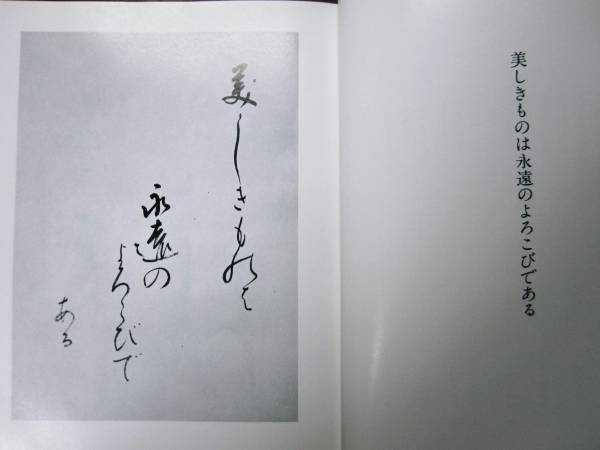 美しきものは永遠のよろこびである
美しきものは
永遠の
よろこびで
ある